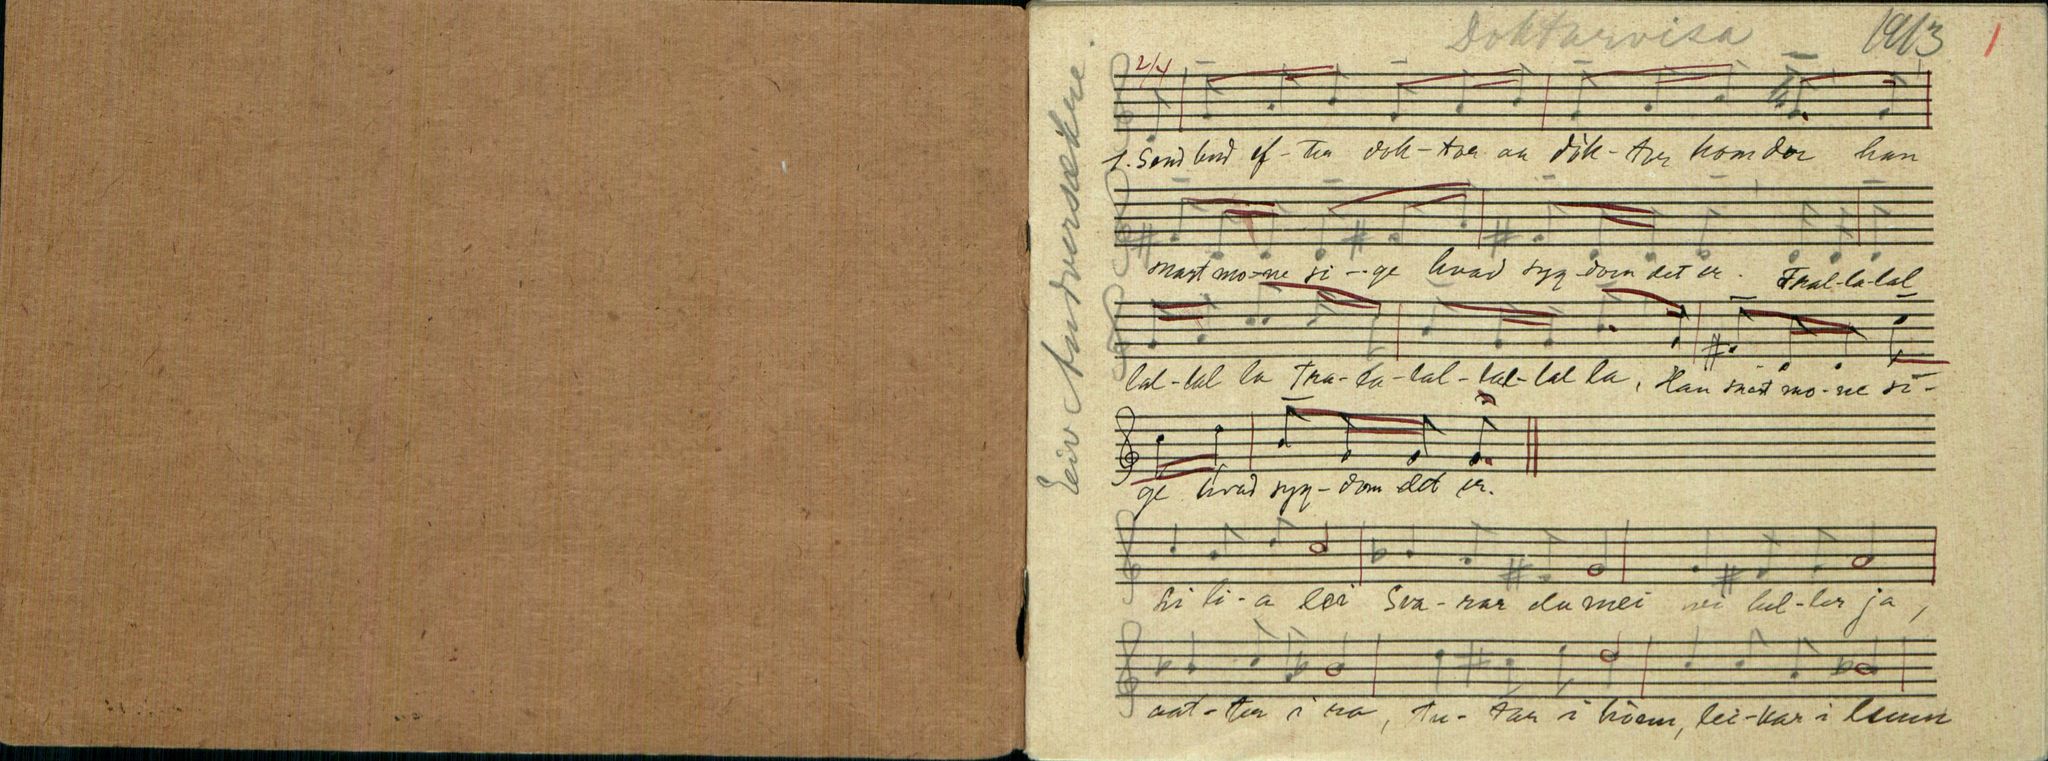 Doktarvisa 1913 1
Eeiv Andversækre.
2/4
1. Send bud ef-ter dok-tor aa dok-tor kom der han
snart mo-ne si-ge hvad syg-dom det er. Tral-la-lal
lal-lal la tra-la-lal-lal-lal la, Han snart mo-ne si-
ge hvad syg-dom det er.
li-a lei Sva-rar du mei lul-ler ja,
i ro, tu-tar i horn, lei-kar i